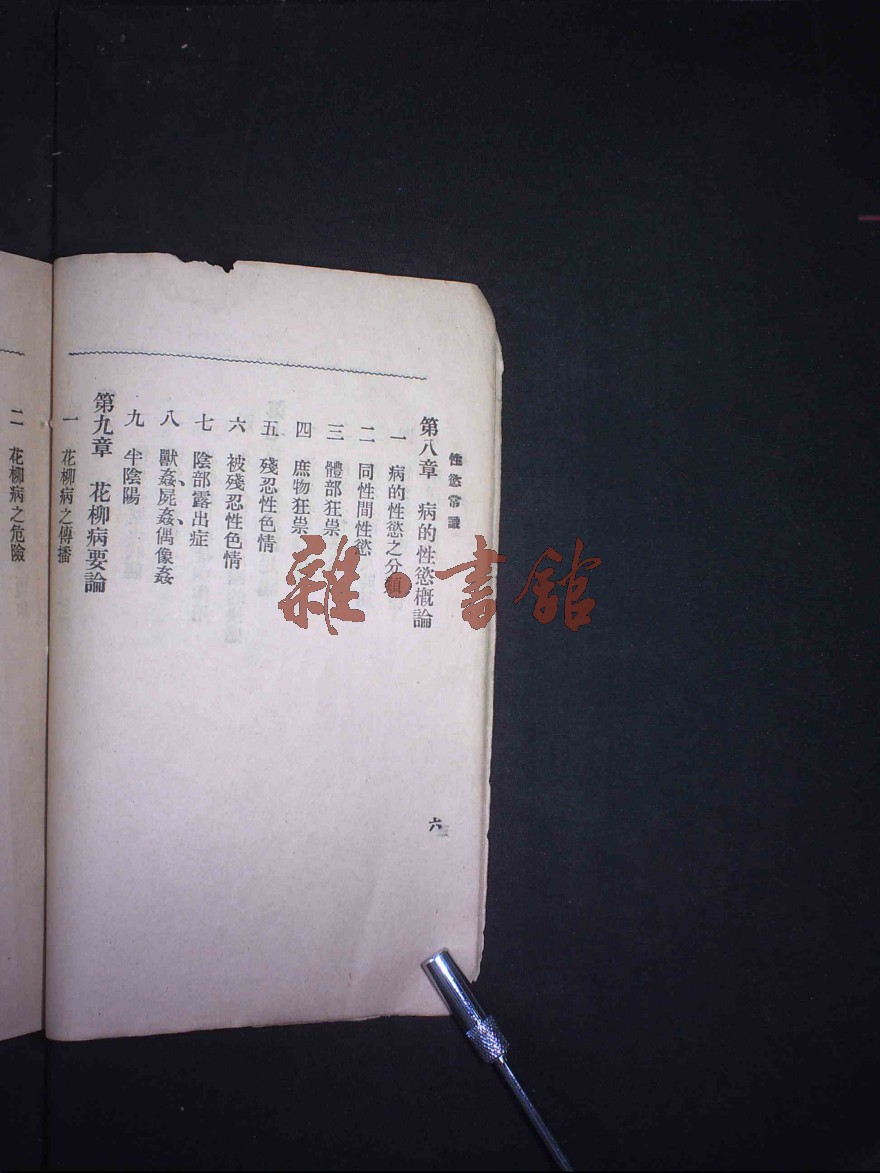 性慾常識
第八章　病的性慾概論
一　病的性慾之分類
二　同性間性慾
三　體部狂祟
四　庶物狂祟
五　殘忍性色情
六　被殘忍性色情
七　陰部露出症
八　獸姦、屍姦、偶像姦
九　半陰陽
第九章　花柳病要論
一　花柳病之傳播
二　花柳病之危險
六
雜·書館